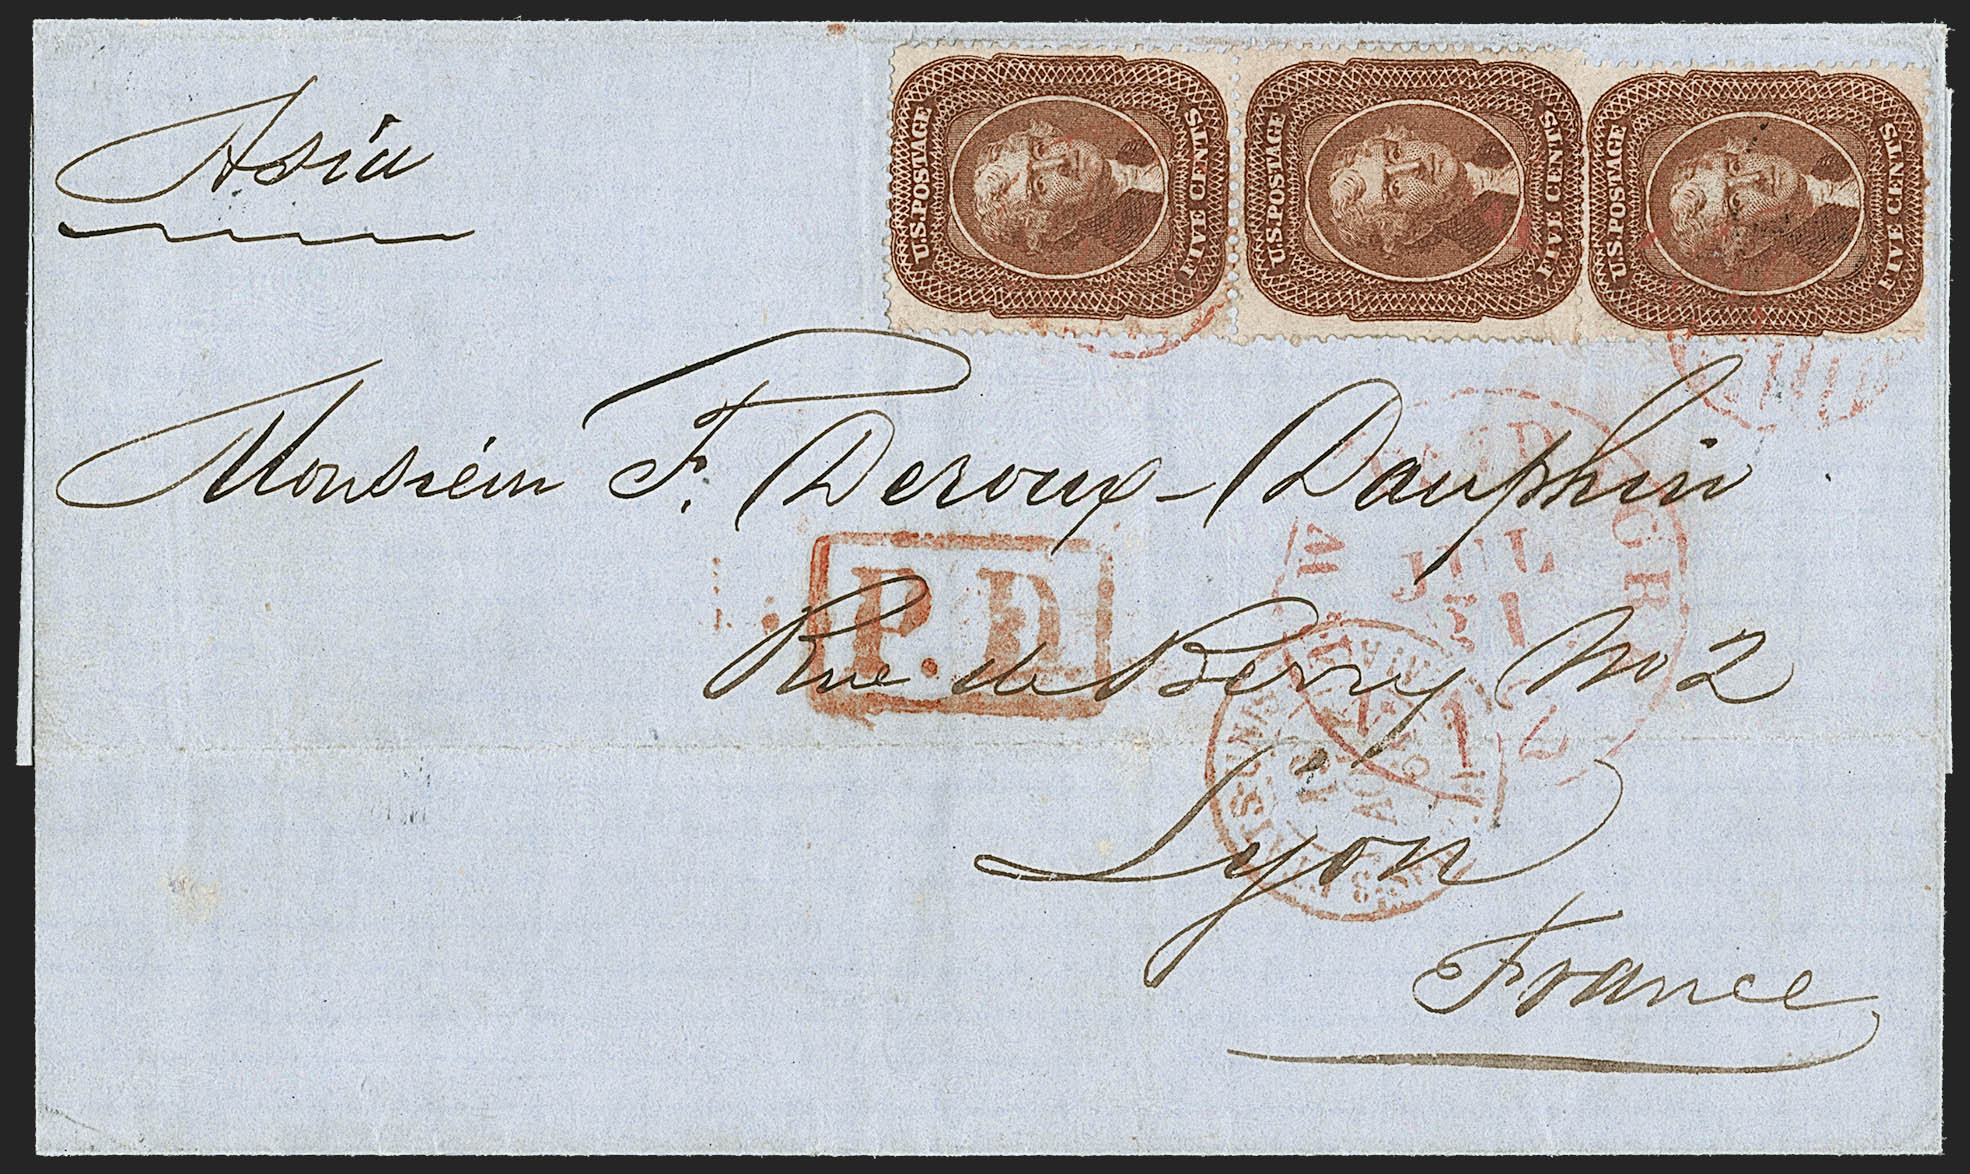 Asia
U.S. POSTAGE FIVE CENTS
U.S. POSTAGE FIVE CENTS
U.S. POSTAGE FIVE CENTS
Monsieur F. Deroux-Dauphin
P.D.
JUL
31
12
Rue de Berry No 2
Lyon
France